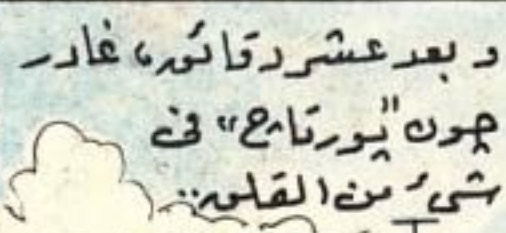 و بعد عشر دقائق، غادر
چون "پورتارج" فى
شئ من القلق..